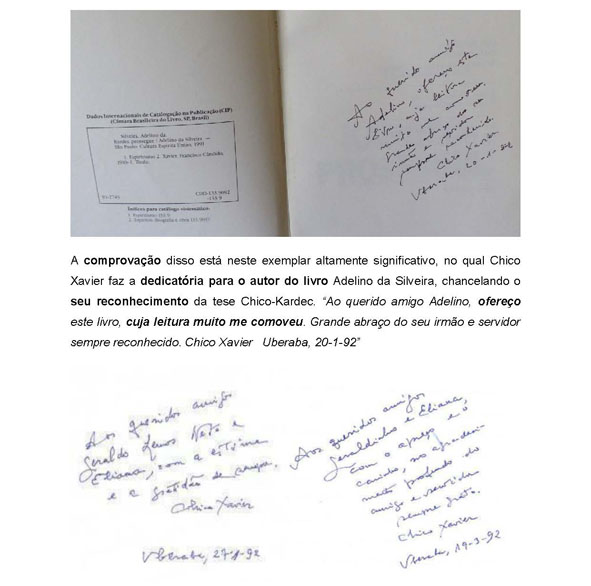 Dados Internacionais de Catalogação na Publicação (CIP)
(Câmara Brasileira do Livro, SP, Brasil)
Silveira, Adelino da
Adelino da Silveira. —
São Paulo: Cultura Espírita União, 1991
1. Espiritismo 2. Xavier, Francisco Cândido,
1910- I. Título.
CDD-133.9092
-133.9
Índices para catálogo sistemático:
1. Espiritismo 133.9
2. Espíritas: Biografia e obra 133.9092
Ao querido amigo
Adelino, ofereço este
livro, cuja leitura
muito me comoveu.
Grande abraço do seu
irmão e servidor
sempre reconhecido.
Chico Xavier
Uberaba, 20-1-92
A comprovação disso está neste exemplar altamente significativo, no qual Chico
Xavier faz a dedicatória para o autor do livro Adelino da Silveira, chancelando o
seu reconhecimento da tese Chico-Kardec. “Ao querido amigo Adelino, ofereço
este livro, cuja leitura muito me comoveu. Grande abraço do seu irmão e servidor
sempre reconhecido. Chico Xavier Uberaba, 20-1-92”
Aos queridos amigos
Geraldo Lemos Neto e
Eliana, com a estima
e a gratidão de sempre.
Chico Xavier
Uberaba, 27-1-92
Aos queridos amigos
Geraldinho e Eliana,
com o apreço e o
carinho, no agradeci-
mento profundo do
amigo e servidor
sempre grato.
Chico Xavier
Uberaba, 19-3-92